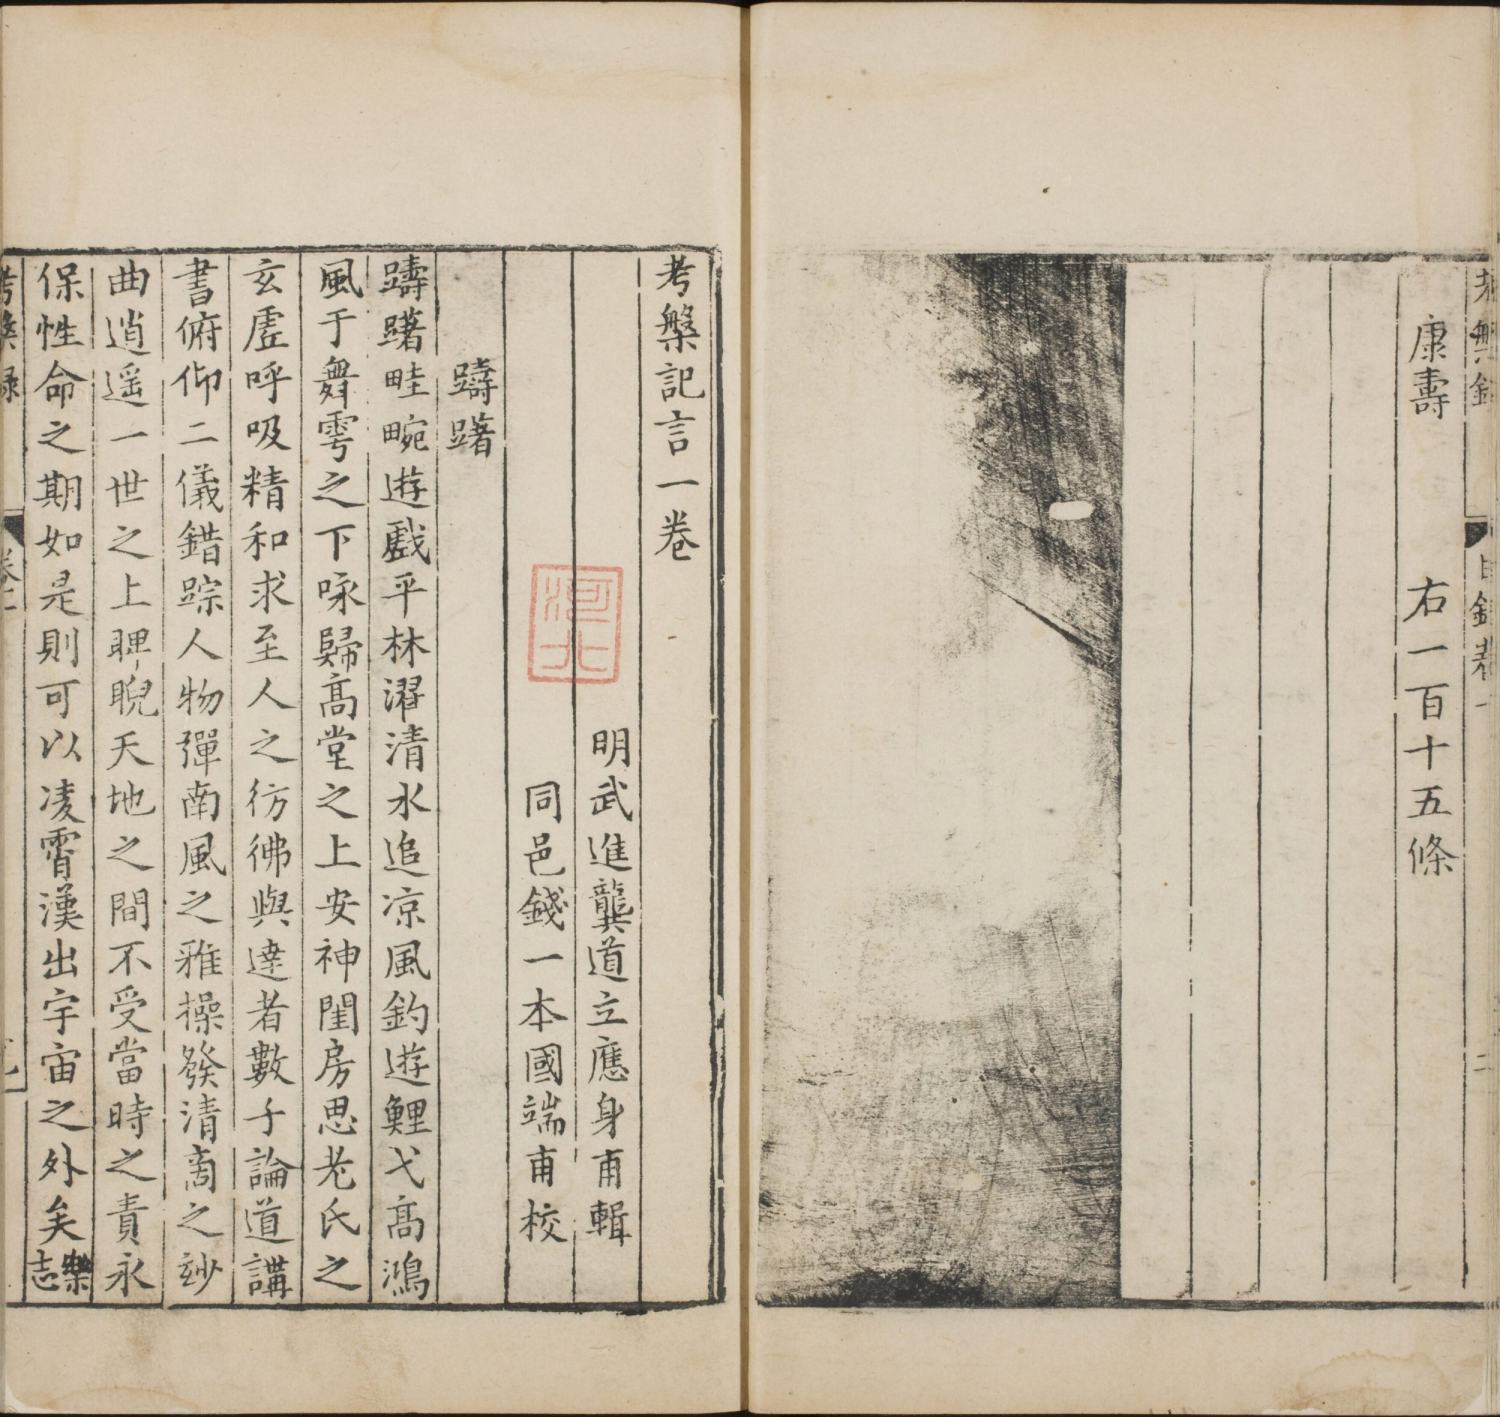 康壽
右一百十五條
考槃記言一卷
明武進龔道立應身甫輯
同邑錢一本國端甫校
躊躇
躊躇畦畹遊戲平林濯清水追凉風釣遊鯉弋高鴻
風于舞雩之下咏歸高堂之上安神閨房思老氏之
玄虛呼吸精和求至人之彷彿與達者數子論道講
書俯仰二儀錯踪人物彈南風之雅操發清啇之玅
曲逍遥一世之上睥睨天地之間不受當時之責永
保性命之期如是則可以凌霄漢出宇宙之外矣樂志
河北